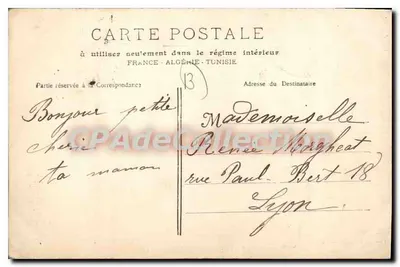 CARTE POSTALE
à utiliser seulement dans le régime intérieur
FRANCE - ALGÉRIE - TUNISIE
B
Partie réservée à la Correspondance
Adresse du Destinataire
Bonjour petite
cherie
ta maman
Mademoiselle
Renée
rue Paul Bert 18
Lyon.
CPADeCollection